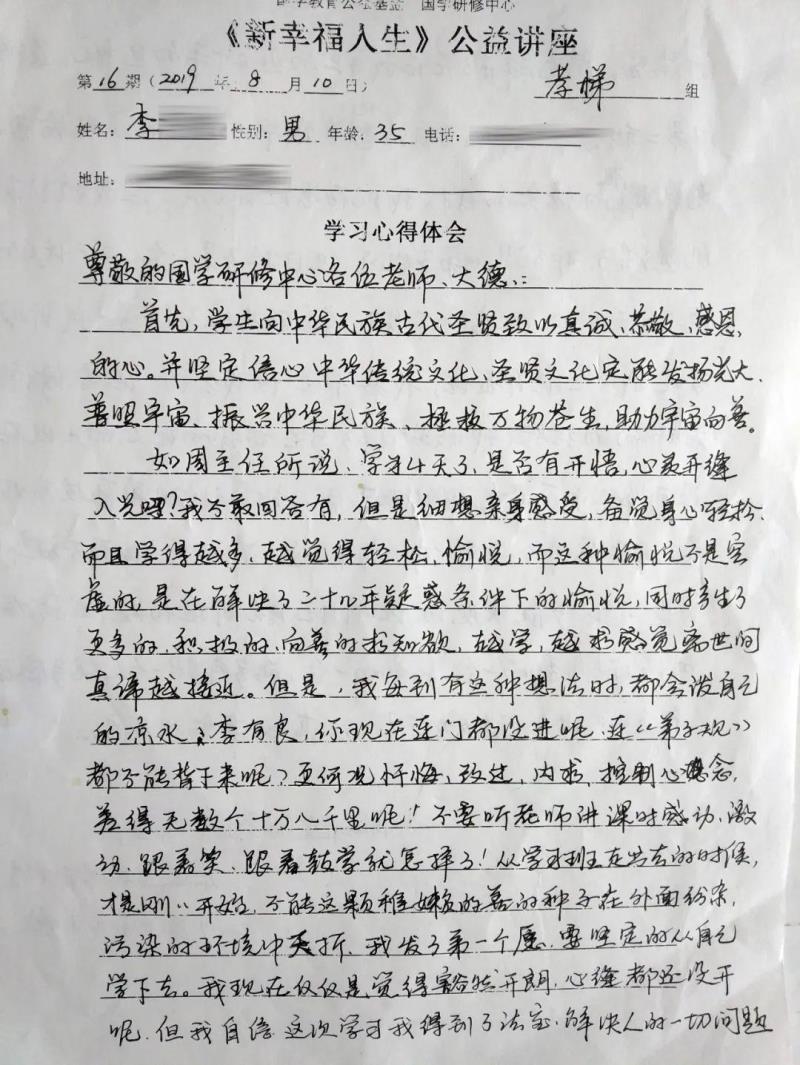 国学教育公益基金 国学研修中心
《新幸福人生》公益讲座
第16期(2019年8月10日) 孝悌组
姓名:李 性别:男 年龄:35 电话:
地址:
学习心得体会
尊敬的国学研修中心各位老师、大德:
首先,学生向中华民族古代圣贤致以真诚、恭敬、感恩
的心。并坚定信心中华传统文化、圣贤文化定能发扬光大、
普照宇宙、振兴中华民族、拯救万物苍生,助力宇宙向善。
如周主任所说、学习4天了、是否有开悟,心灵开缝
入光吧?我不敢回答有,但是细想亲身感受,备觉身心轻松、
而且学得越多、越觉得轻松、愉悦,而这种愉悦不是空
虚的,是在解决了二十几年疑惑条件下的愉悦,同时产生了
更多的、积极的、向善的求知欲,越学,越求感觉离世间
真谛越接近。但是,我每到有这种想法时,都会泼自己
的凉水:李有良,你现在连门都没进呢、连《弟子规》
都不能背下来呢?更何况忏悔,改过,内求,控制心念,
差得无数个十万八千里呢!不要听老师讲课时感动、激
动、跟着笑、跟着鼓掌就怎样了!从学习班走出去的时候,
才是刚刚开始,不能这颗稚嫩的善的种子在外面纷杂,
污染的环境中夭折,我发了第一个愿、要坚定的从自己
学下去。我现在仅仅是觉得豁然开朗,心缝都还没开
呢,但我自信这次学习我得到了法宝、解决人的一切问题